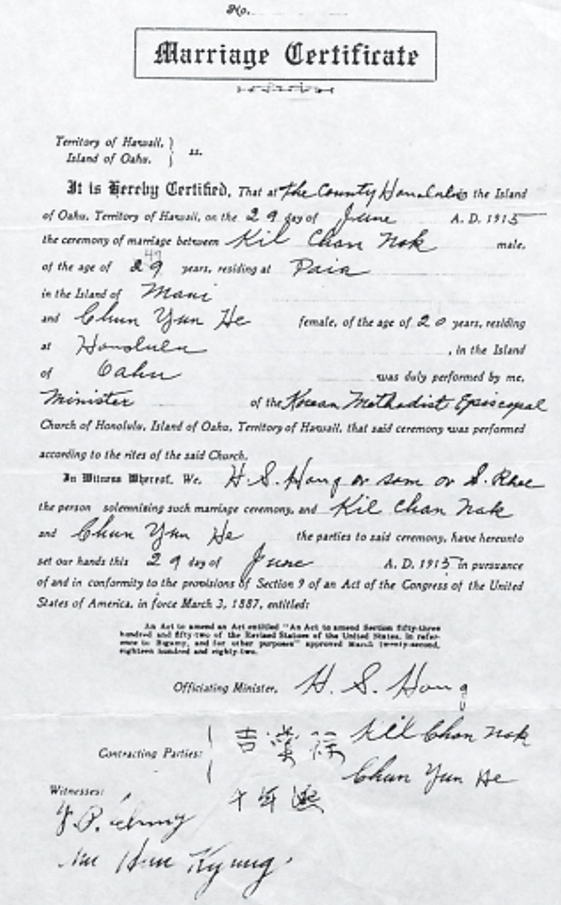 No.
Marriage Certificate
Territory of Hawaii,
Island of Oahu. } ss.
It is Hereby Certified, That at the County Honolulu in the Island
of Oahu, Territory of Hawaii, on the 29 day of June A. D. 1915
the ceremony of marriage between Kil Chan Nok male,
of the age of 29 years, residing at Paia
in the Island of Maui
and Chun Yun He female, of the age of 20 years, residing
at Honolulu , in the Island
of Oahu was duly performed by me,
Minister of the Korean Methodist Episcopal
Church of Honolulu, Island of Oahu, Territory of Hawaii, that said ceremony was performed
according to the rites of the said Church.
In Witness Whereof, We, H. S. Hong or sam or S. Rhee
the person solemnising such marriage ceremony, and Kil Chan Nok
and Chun Yun He the parties to said ceremony, have hereunto
set our hands this 29 day of June A. D. 1915 in pursuance
of and in conformity to the provisions of Section 9 of an Act of the Congress of the United
States of America, in force March 3, 1887, entitled:
An Act to amend an Act entitled "An Act to amend Section fifty-three
hundred and fifty-two of the Revised Statues of the United States, in refer-
ence to Bigamy, and for other purposes" approved March twenty-second,
eighteen hundred and eighty-two.
Officiating Minister, H. S. Hong
Contracting Parties: 吉 Kil Chan Nok
Chun Yun He
Witnesses: